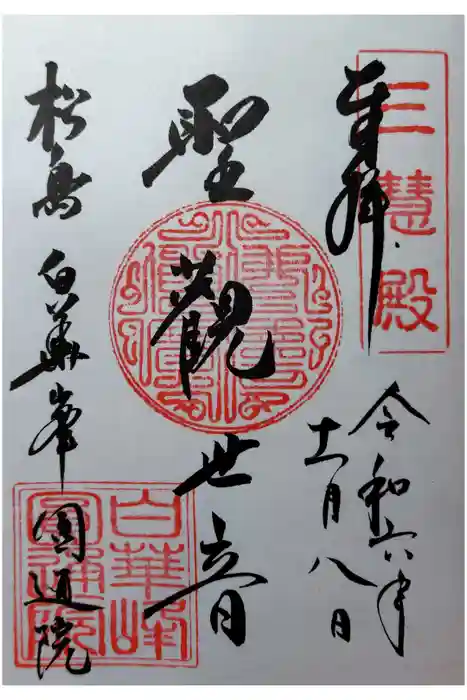 奉拝
三慧殿
令和六年
十一月八日
聖觀世音
松島 白華峯 圓通院
白華峰
圓通院